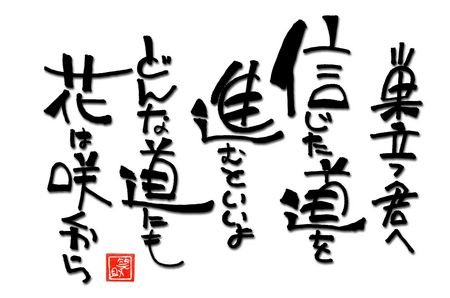 巣立つ君へ
信じた道を
進むといいよ
どんな道にも
花は咲くから